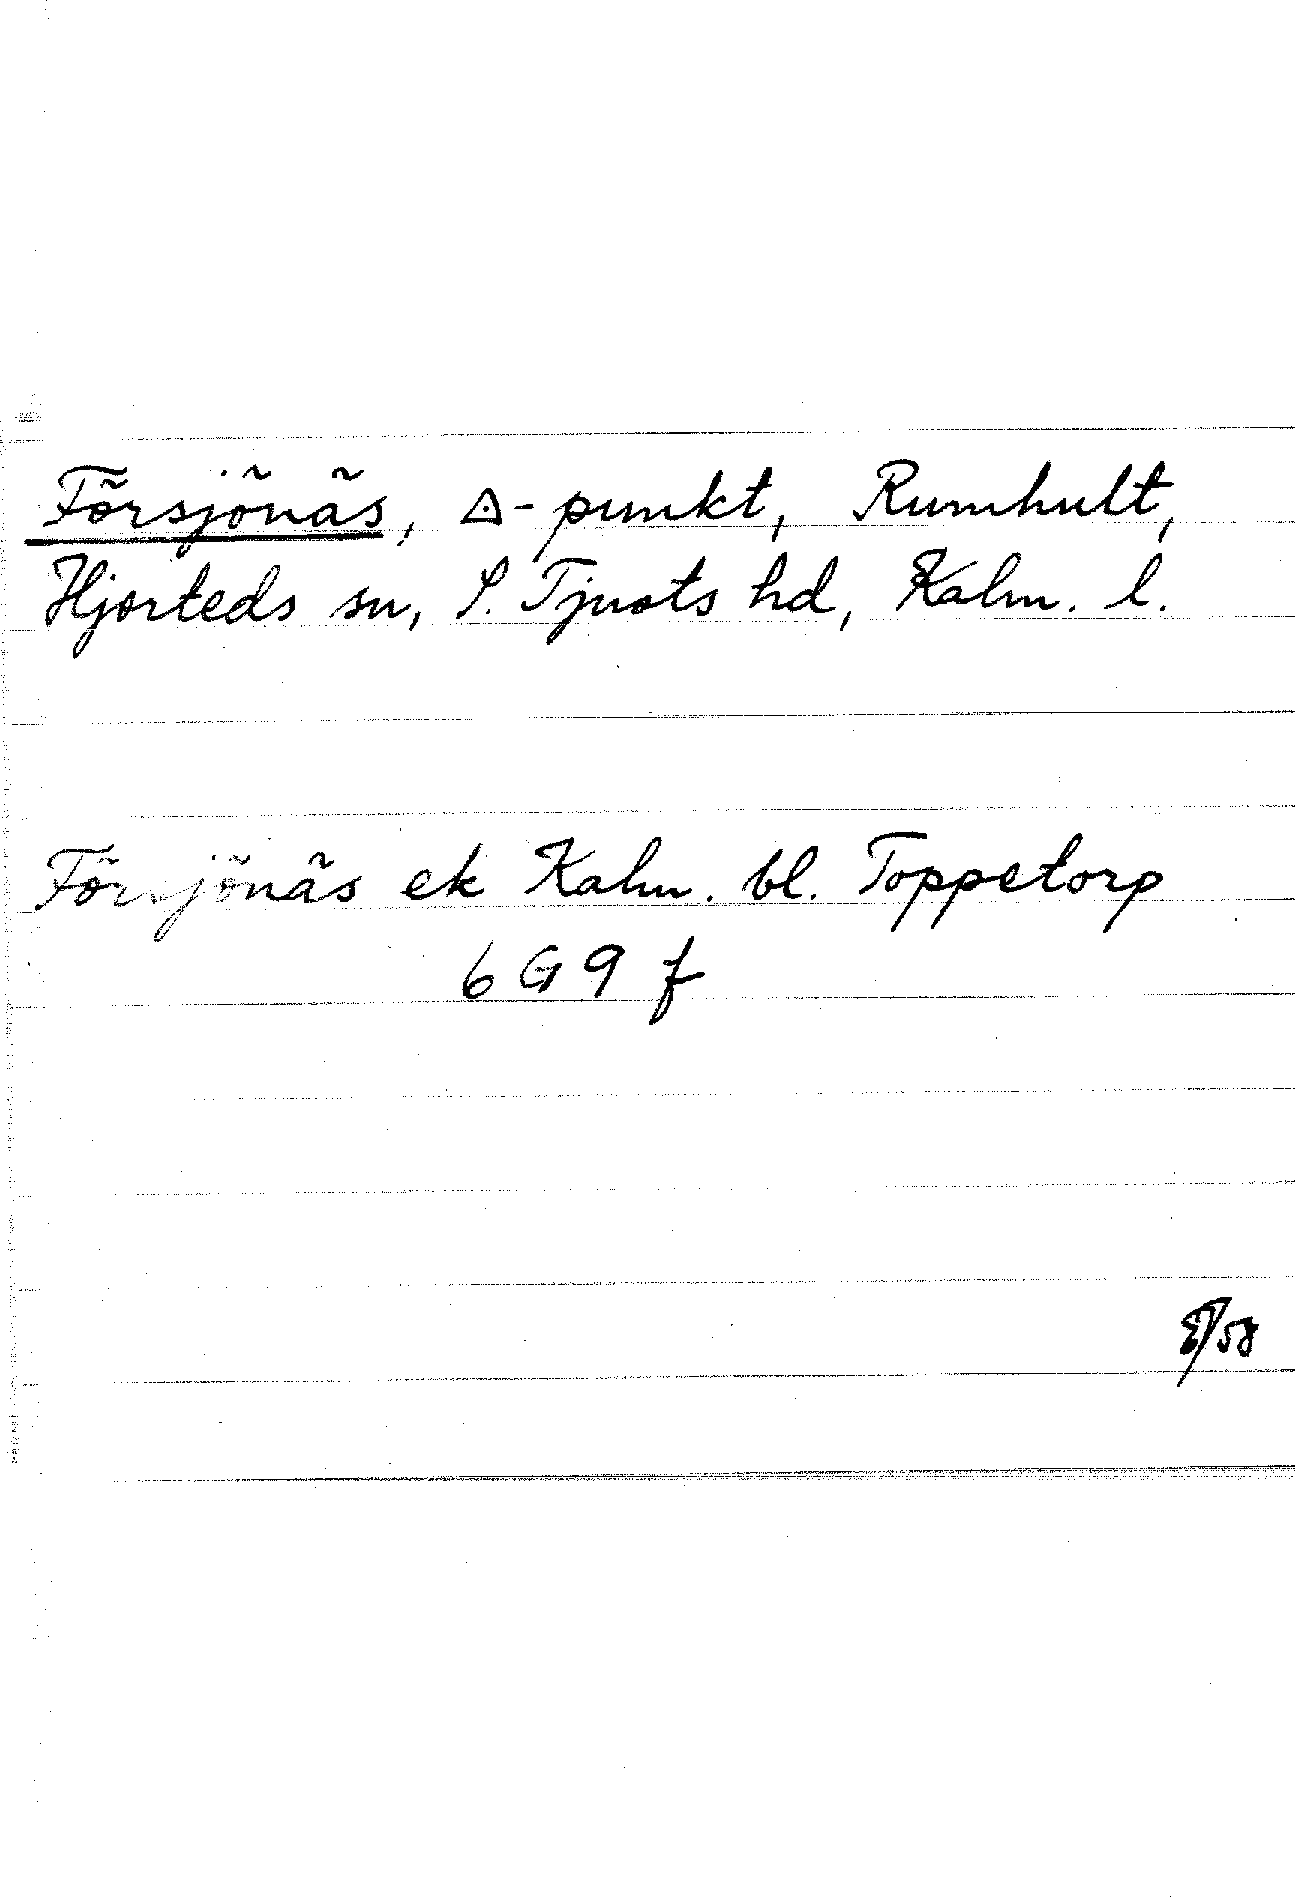 Försjönäs, ◬-punkt, Rumhult,
Hjorteds sn, S. Tjusts hd, Kalm. l.
Försjönäs ek Kalm. bl. Toppetorp
6 G 9 f